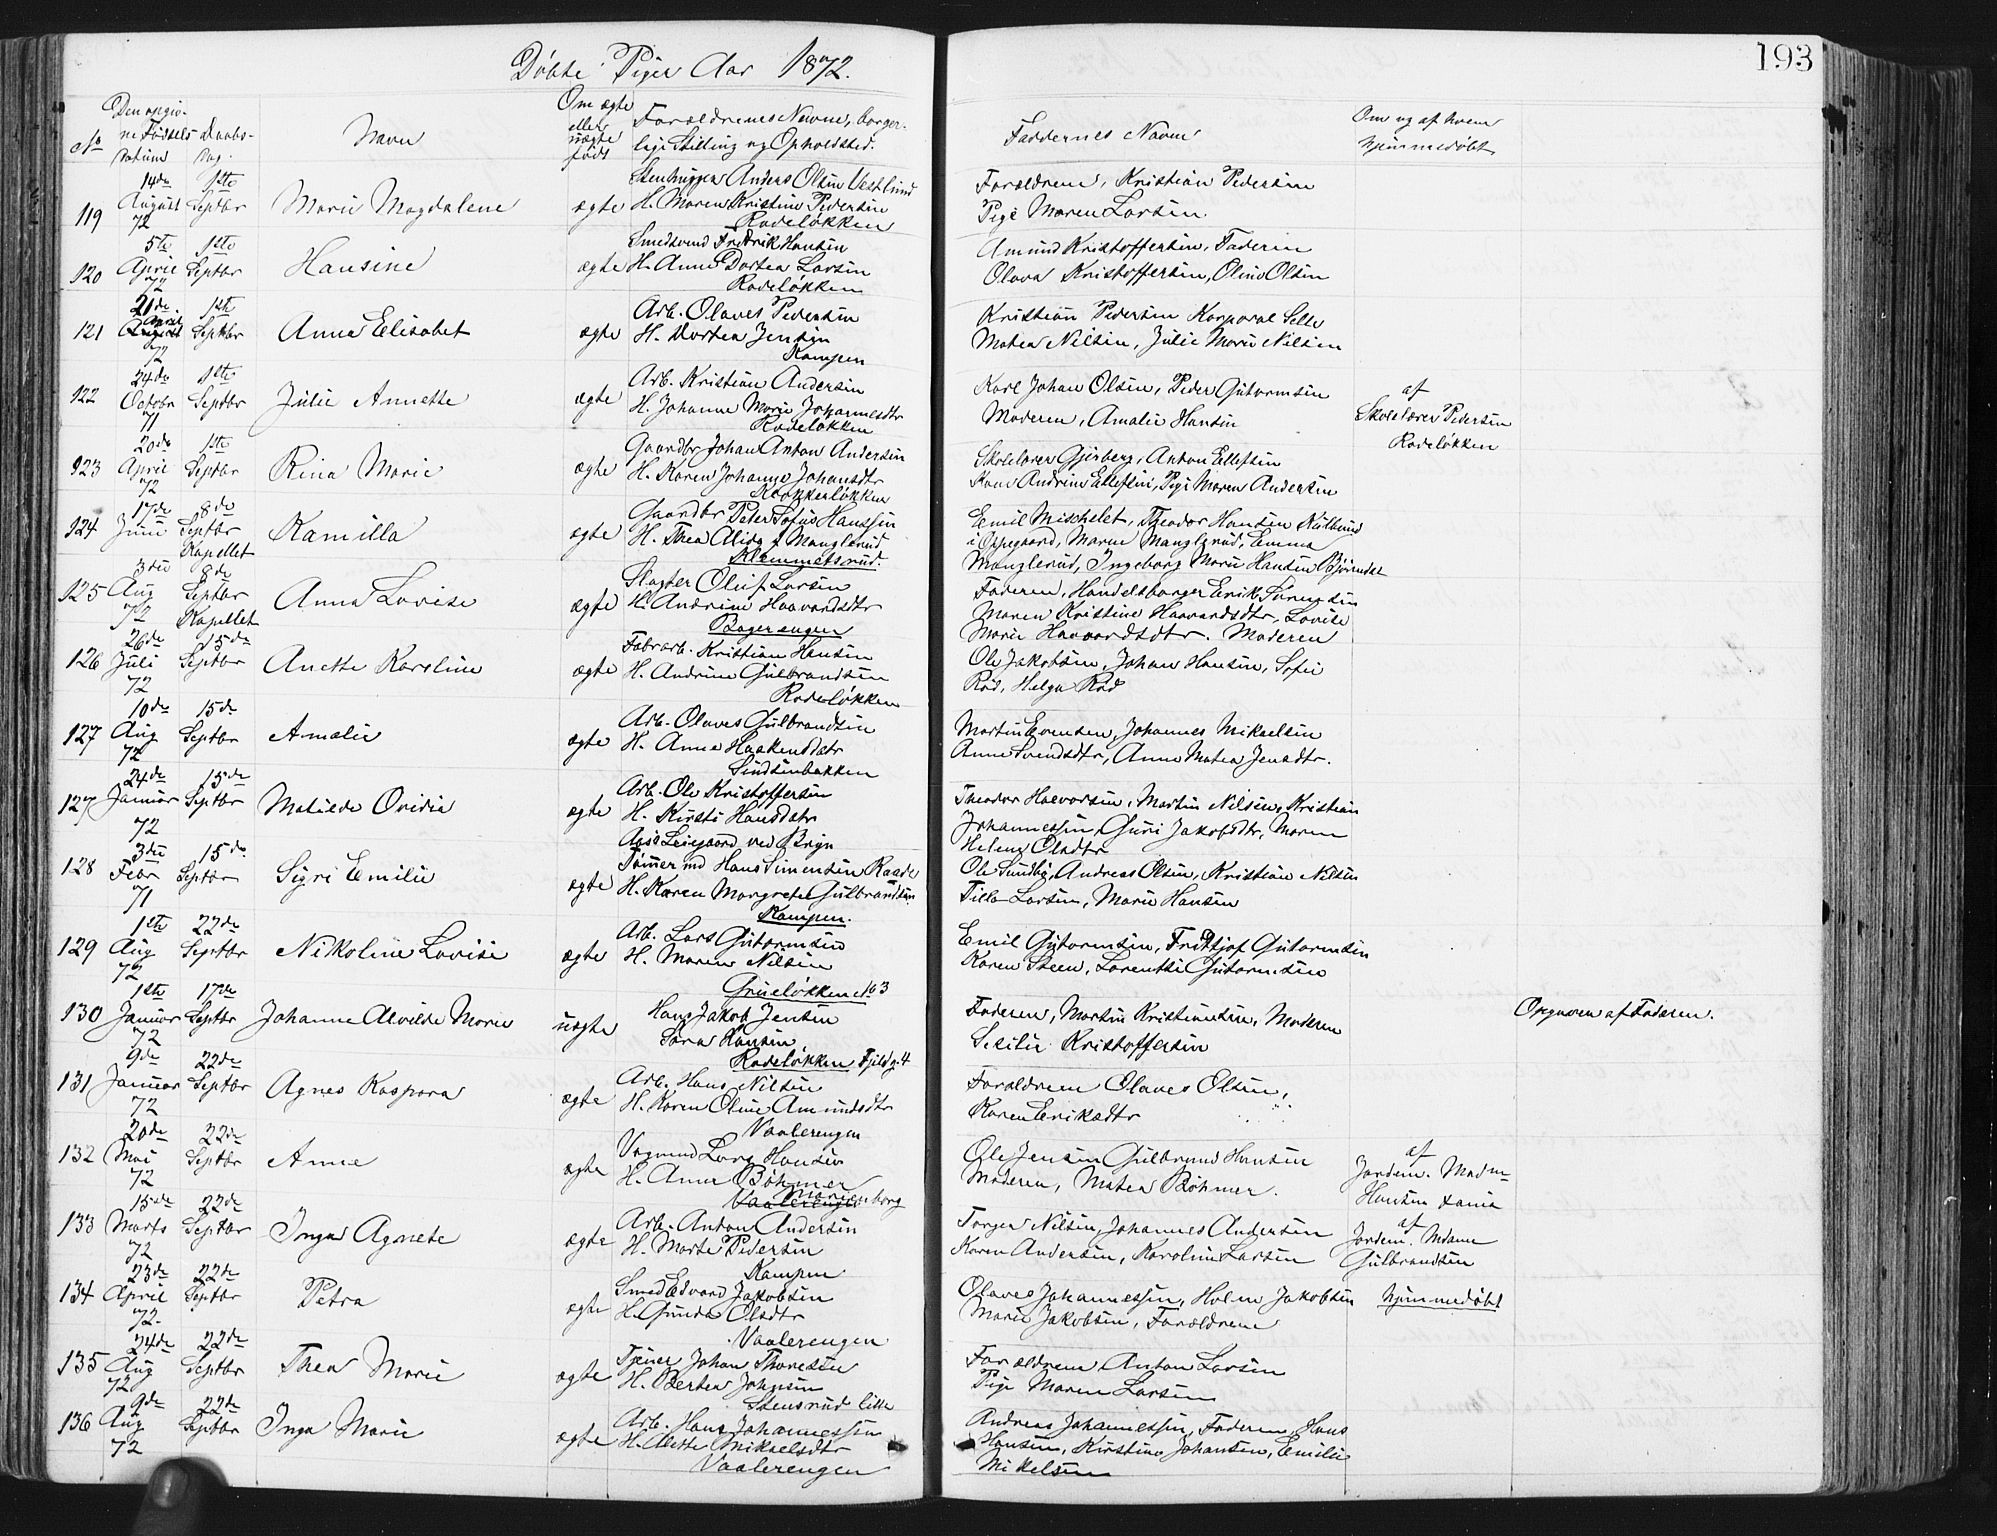 Døbte Piger Aar 1872.
193
No
Den opgiv-
ne Fødsels
Datum
Daabs-
Dag.
Navn
Om ægte
eller
uægte
født
Forældrenes Navne, borger-
lige Stilling og Opholdsted.
Faddernes Navne
Om og af hvem
hjemmedøbt
119
14de
August
72
1ste
Septbr
Marie Magdalene
ægte
Stenhugger Anders Olsen Vestlund
H. Maren Kristine Pedersen
Rodeløkken
Forældrene, Kristian Pedersen
Pige Maren Larsen.
120
5te
April
72
1ste
Septbr
Hansine
ægte
Smedsvend Fredrik Hansen
H. Anne Dortea Larsen
Rodeløkken
Amund Kristoffersen, Faderen
Olava Kristoffersen, Oline Olsen
121
21de
April
72
1ste
Septbr
Anna Elisabet
ægte
Arb. Olaves Pedersen
H. Dortea Jensen
Kampen
Kristian Pedersen Korporal Selle
Matea Nilsen, Julie Marie Nilsen
122
24de
Octobr
71
1ste
Septbr
Julie Annette
ægte
Arb. Kristian Andersen
H. Johanne Marie Johannesdtr
Rodeløkken
Karl Johan Olsen, Peder Gutormsen
Moderen, Amalie Hansen
af
Skolelærer Pedersen
Rodeløkken
123
20de
April
72
1ste
Septbr
Rina Marie
ægte
Gaardbr Johan Anton Andersen
H. Karen Johanne Johansdtr
Klopperløkken
Skolelærer Gjerberg, Anton Ellefsen
Kone Andrine Ellefsen, Pige Maren Andersen
124
17de
Juni
8de
Septbr
Kapellet
Kamilla
ægte
Gaardbr Peter Sofus Hanssen
H. Thea Alida f. Manglerud
Klemmetsrud.
Emil Mischelet, Theodor Hansen Kulbrud
i Oppegaard, Maren Manglerud, Emma
Manglerud, Ingeborg Marie Hansen Bjørndal
125
3die
Aug
72
8de
Septbr
Kapellet
Anna Lovise
ægte
Slagter Oluf Larsen
H. Andrine Haavardsdtr
Bagerengen
Faderen, Handelsborger Erik Sørensen
Maren Kristine Haavardsdtr, Lovise
Marie Haavardsdtr. Moderen
126
26de
Juli
72
15de
Septbr
Anette Karoline
ægte
Fabrarb. Kristian Hansen
H. Andrine Gulbrandsen
Rodeløkken
Ole Jakobsen, Johan Hansen, Sofie
Rød, Helga Rød
127
10de
Aug
72
15de
Septbr
Amalie
ægte
Arb. Olaves Gulbrandsen
H. Anne Haakensdatr
Sindsenbakken
Martin Evensen, Johannes Mikaelsen
Anne Svendsdtr, Anne Matea Jensdtr.
127
24de
Januar
72
15de
Septbr
Matilde Ovidia
ægte
Arb. Ole Kristoffersen
H. Kirsti Hansdatr
ved Bryn
Theodor Halvorsen, Martin Nilsen, Kristian
Johannessen, Guri Jakobsdtr, Maren
Helene Olsdtr
128
3die
Febr
71
15de
Septbr
Sigri Emilie
ægte
Tømmermd Hans Simensen Raade
H. Karen Margrete Gulbrandsen
Kampen.
Ole Sundby, Andreas Olsen, Kristian Nilsen
Tilla Larsen, Marie Hansen
129
1ste
Aug
72
22de
Septbr
Nikoline Lovise
ægte
Arb. Lars Gutormsen
H. Maren Nilsen
Grueløkken No 3
Emil Gutormsen, Fritjof Gutormsen
Karen Steen, Lorentse Gutormsen
130
1ste
Januar
72
17de
Septbr
Johanne Alvilde Marie
uægte
Hans Jakob Jensen
Sara Hansen
Rodeløkken Fjeldg. 4
Faderen, Martin Kristiansen, Moderen
Sesilie Kristoffersen
Opgaven af Faderen.
131
9de
Januar
72
22de
Septbr
Agnes Kaspara
ægte
Arb. Hans Nilsen
H. Karen Oline Amundsdtr
Vaalerengen
Forældrene Olaves Olsen,
Karen Eriksdtr
132
20de
Mai
72
22de
Septbr
Anna
ægte
Vognmd Lars Hansen
H. Anne Bøhmer
Marienborg
Vaalerengen
Ole Jensen Gulbrand Hansen
Moderen, Matea Bøhmer.
af
Jordem. Madm
Hansen
133
15de
Marts
72
22de
Septbr
Inga Agnete
ægte
Arb. Anton Andersen
H. Marte Pedersen
Kampen
Torger Nilsen, Johannes Andersen
Karen Andersen, Karoline Larsen
af
Jordem. Mdme
Gulbrandsen
134
23de
April
72
22de
Septbr
Petra
ægte
Smed Edvard Jakobsen
H. Gunda Olsdtr
Vaalerengen
Olaves Johannessen, Holm Jakobsen
Marie Jakobsen, Forældrene
hjemmedøbt
135
24de
Aug
72
22de
Septbr
Thea Marie
ægte
Tjener Johan Thoresen
H. Bertea Johnsen
Stensrud lille
Forældrene Anton Larsen
Pige Maren Larsen
136
9de
Aug
72
22de
Septbr
Inga Marie
ægte
Arb. Hans Johannessen
H. Alette Mikaelsdtr
Vaalerengen
Andreas Johannessen, Faderen, Hans
Hansen, Kirstine Johansen, Emilie
Mikelsen